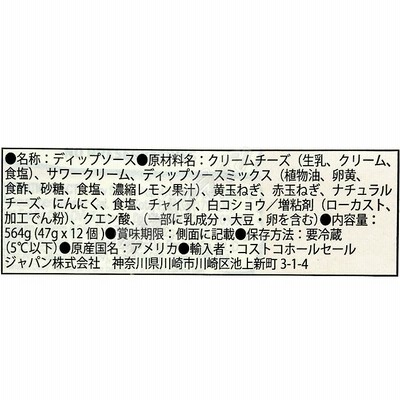 ●名称：ディップソース●原材料名：クリームチーズ（生乳、クリーム、
食塩）、サワークリーム、ディップソースミックス（植物油、卵黄、
食酢、砂糖、食塩、濃縮レモン果汁）、黄玉ねぎ、赤玉ねぎ、ナチュラル
チーズ、にんにく、食塩、チャイブ、白コショウ／増粘剤（ローカスト、
加工でん粉）、クエン酸、（一部に乳成分・大豆・卵を含む）●内容量：
564g（47g x 12個）●賞味期限：側面に記載●保存方法：要冷蔵
（5℃以下）●原産国名：アメリカ●輸入者：コストコホールセール
ジャパン株式会社　神奈川県川崎市川崎区池上新町 3-1-4